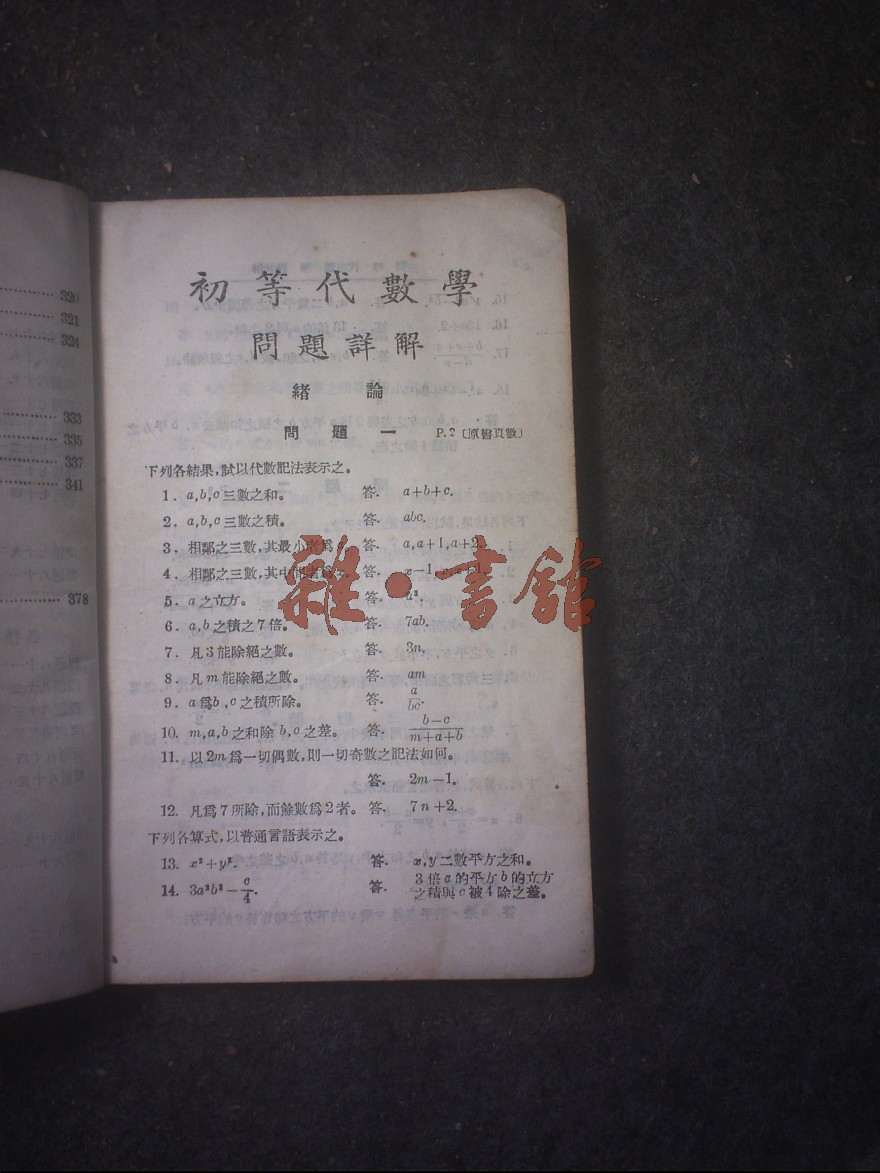 320
321
324
333
335
337
341
378
初等代數學
問題詳解
緒論
問題一 P.2〔原書頁數〕
下列各結果,試以代數記法表示之。
1. a,b,c三數之和。 答. a+b+c.
2. a,b,c三數之積。 答. abc.
3. 相鄰之三數,其最小者爲 答. a,a+1,a+2.
4. 相鄰之三數,其中間者爲 答. x-1,x,x+1.
5. a之立方。 答. a³.
6. a,b之積之7倍。 答. 7ab.
7. 凡3能除絕之數。 答. 3n.
8. 凡m能除絕之數。 答. am
9. a爲b,c之積所除。 答. a/bc.
10. m,a,b之和除b,c之差。 答. (b-c)/(m+a+b)
11. 以2m爲一切偶數,則一切奇數之記法如何。
答. 2m-1.
12. 凡爲7所除,而餘數爲2者。 答. 7n+2.
下列各算式,以普通言語表示之。
13. x²+y². 答. x,y二數平方之和。
14. 3a²b³-c/4. 答. 3倍a的平方b的立方
之積與c被4除之差。
雜·書館